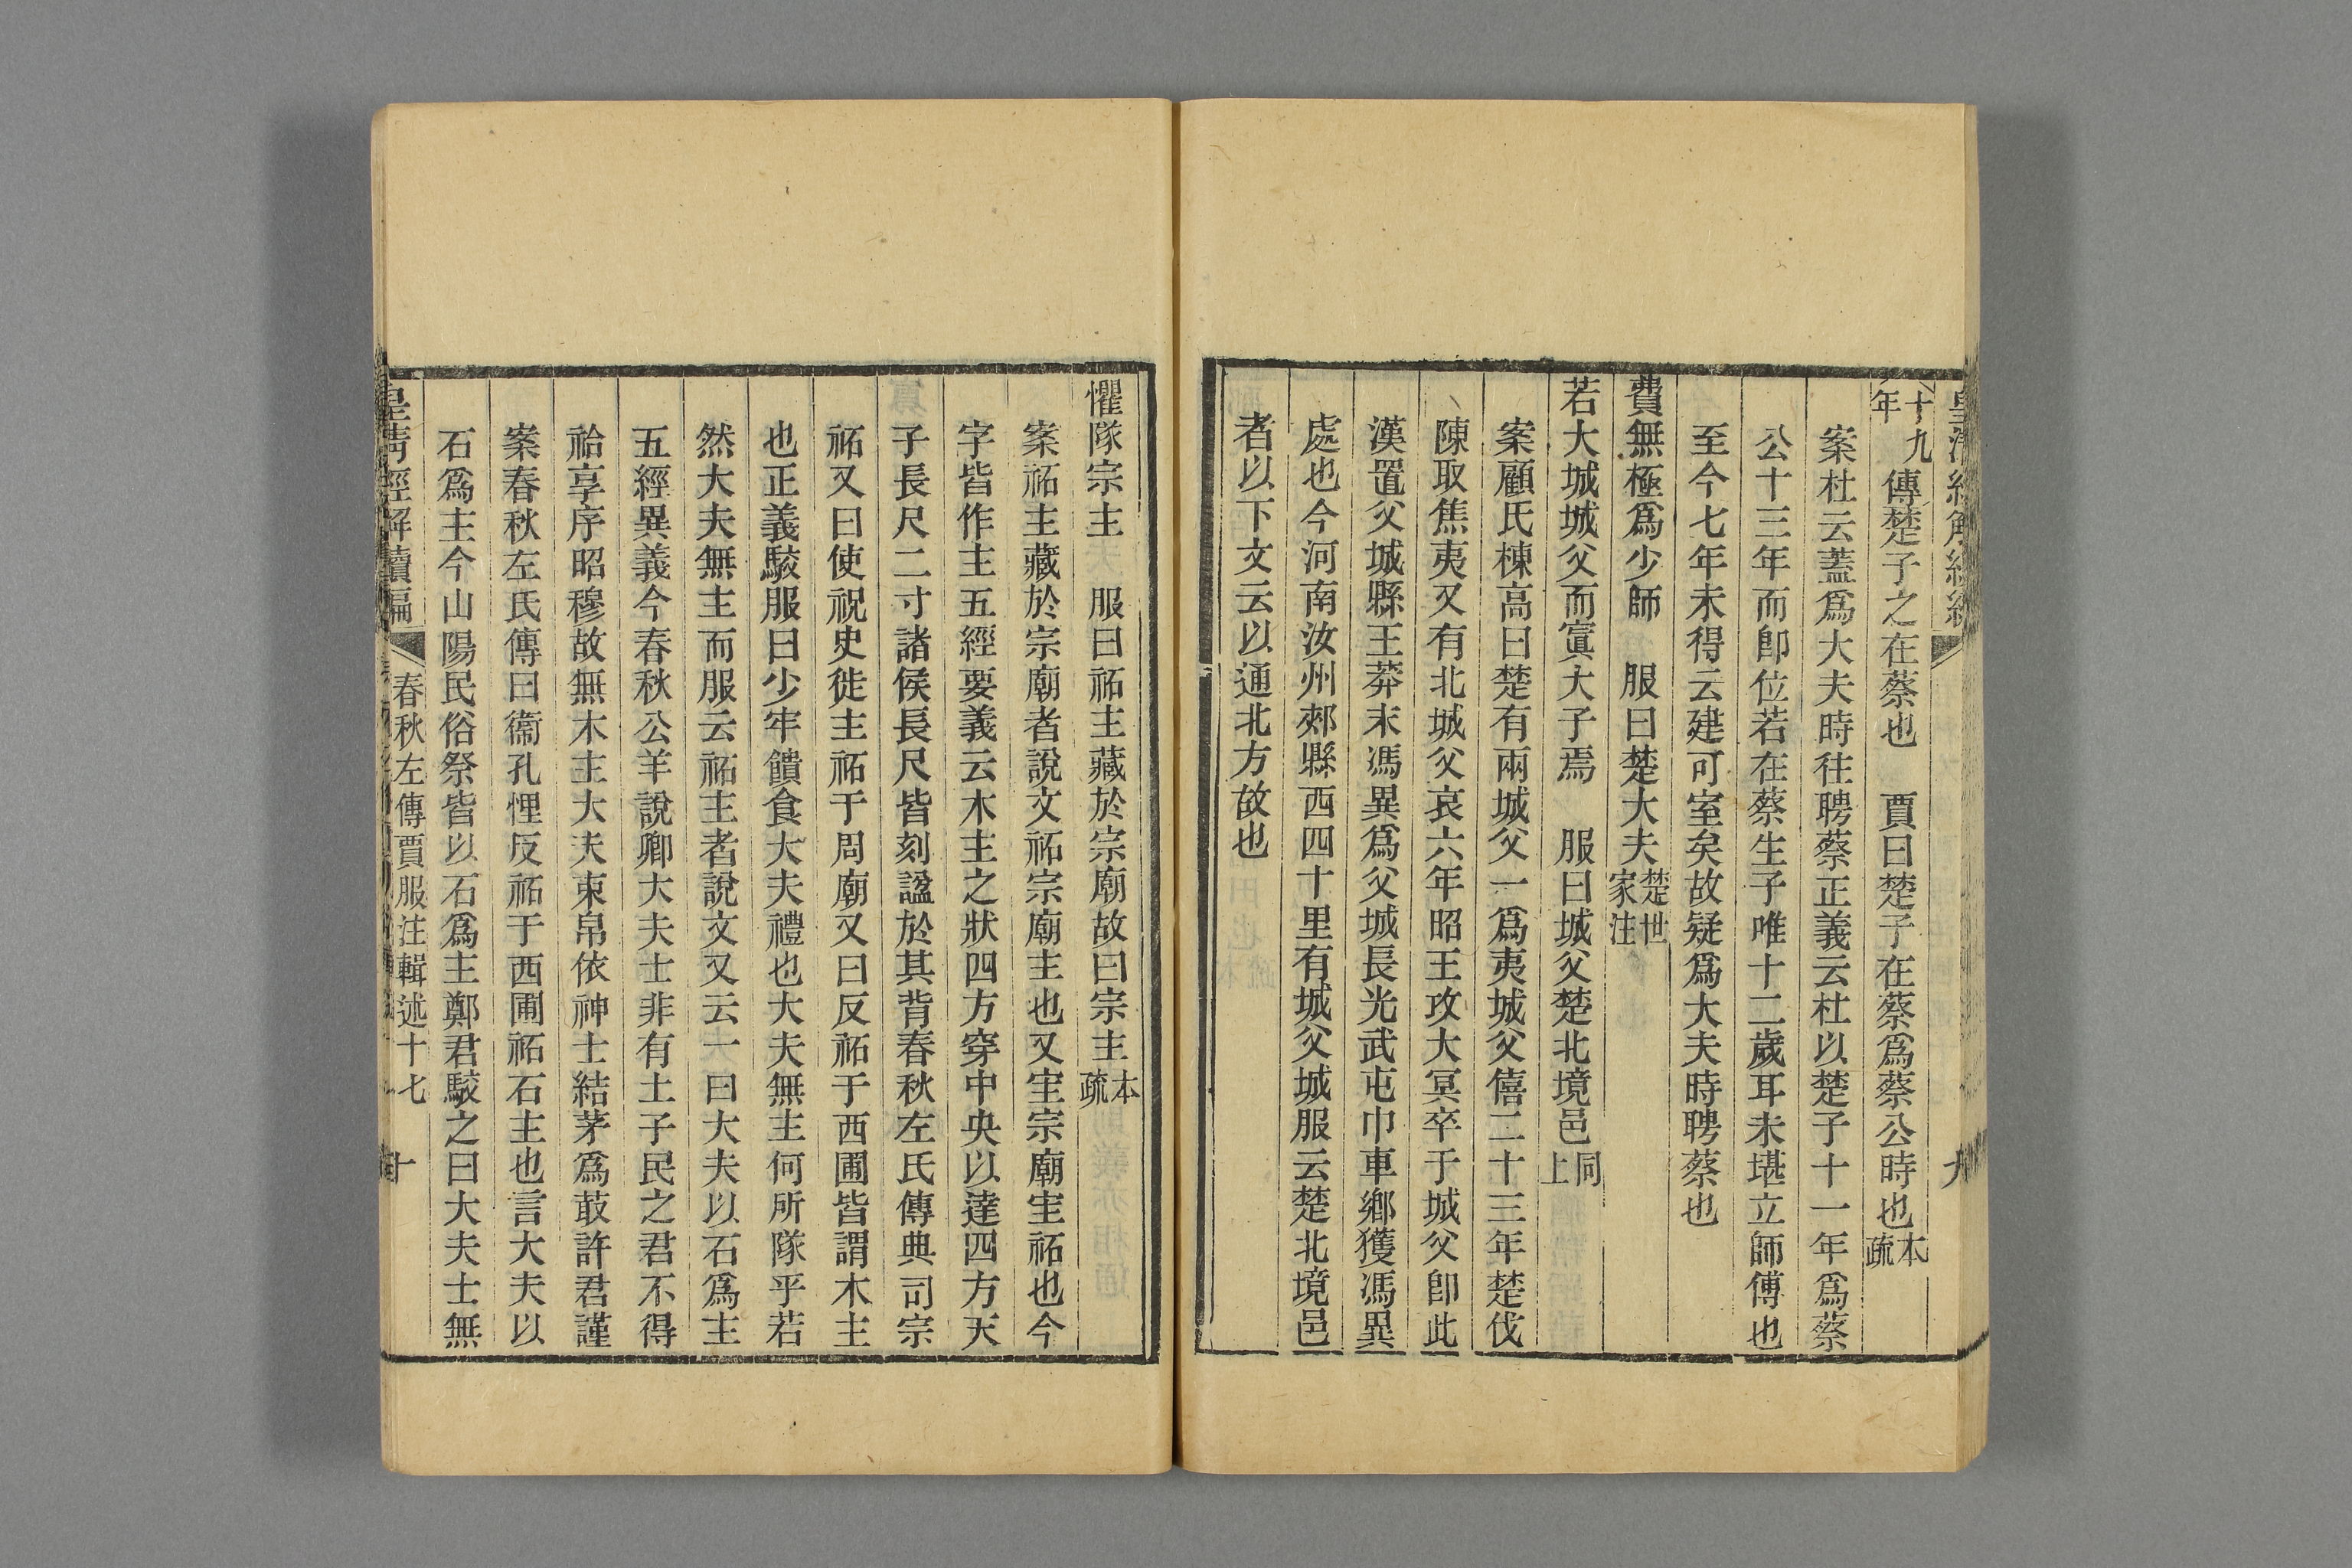 十九年傳楚子之在蔡也　賈曰楚子在蔡爲蔡公時也本疏
案杜云蓋爲大夫時往聘蔡正義云杜以楚子十一年爲蔡
公十三年而卽位若在蔡生子唯十二歲耳未堪立師傅也
至今七年未得云建可室矣故疑爲大夫時聘蔡也
費無極爲少師　服曰楚大夫楚世家注
若大城城父而寘大子焉　服曰城父楚北境邑同上
案顧氏棟高曰楚有兩城父一爲夷城父僖二十三年楚伐
陳取焦夷又有北城父哀六年昭王攻大冥卒于城父卽此
漢置父城縣王莽末馮異爲父城長光武屯巾車鄉獲馮異
處也今河南汝州郟縣西四十里有城父城服云楚北境邑
者以下文云以通北方故也
懼隊宗主　服曰祏主藏於宗廟故曰宗主本疏
案祏主藏於宗廟者說文祏宗廟主也又宔宗廟宔祏也今
字皆作主五經要義云木主之狀四方穿中央以達四方天
子長尺二寸諸侯長尺皆刻諡於其背春秋左氏傳典司宗
祏又曰使祝史徙主祏于周廟又曰反祏于西圃皆謂木主
也正義駮服曰少牢饋食大夫禮也大夫無主何所隊乎若
然大夫無主而服云祏主者說文又云一曰大夫以石爲主
五經異義今春秋公羊說卿大夫士非有土子民之君不得
祫享序昭穆故無木主大夫束帛依神士結茅爲菆許君謹
案春秋左氏傳曰衞孔悝反祏于西圃祏石主也言大夫以
石爲主今山陽民俗祭皆以石爲主鄭君駮之曰大夫士無
皇清經解續編　春秋左傳賈服注輯述十七　十